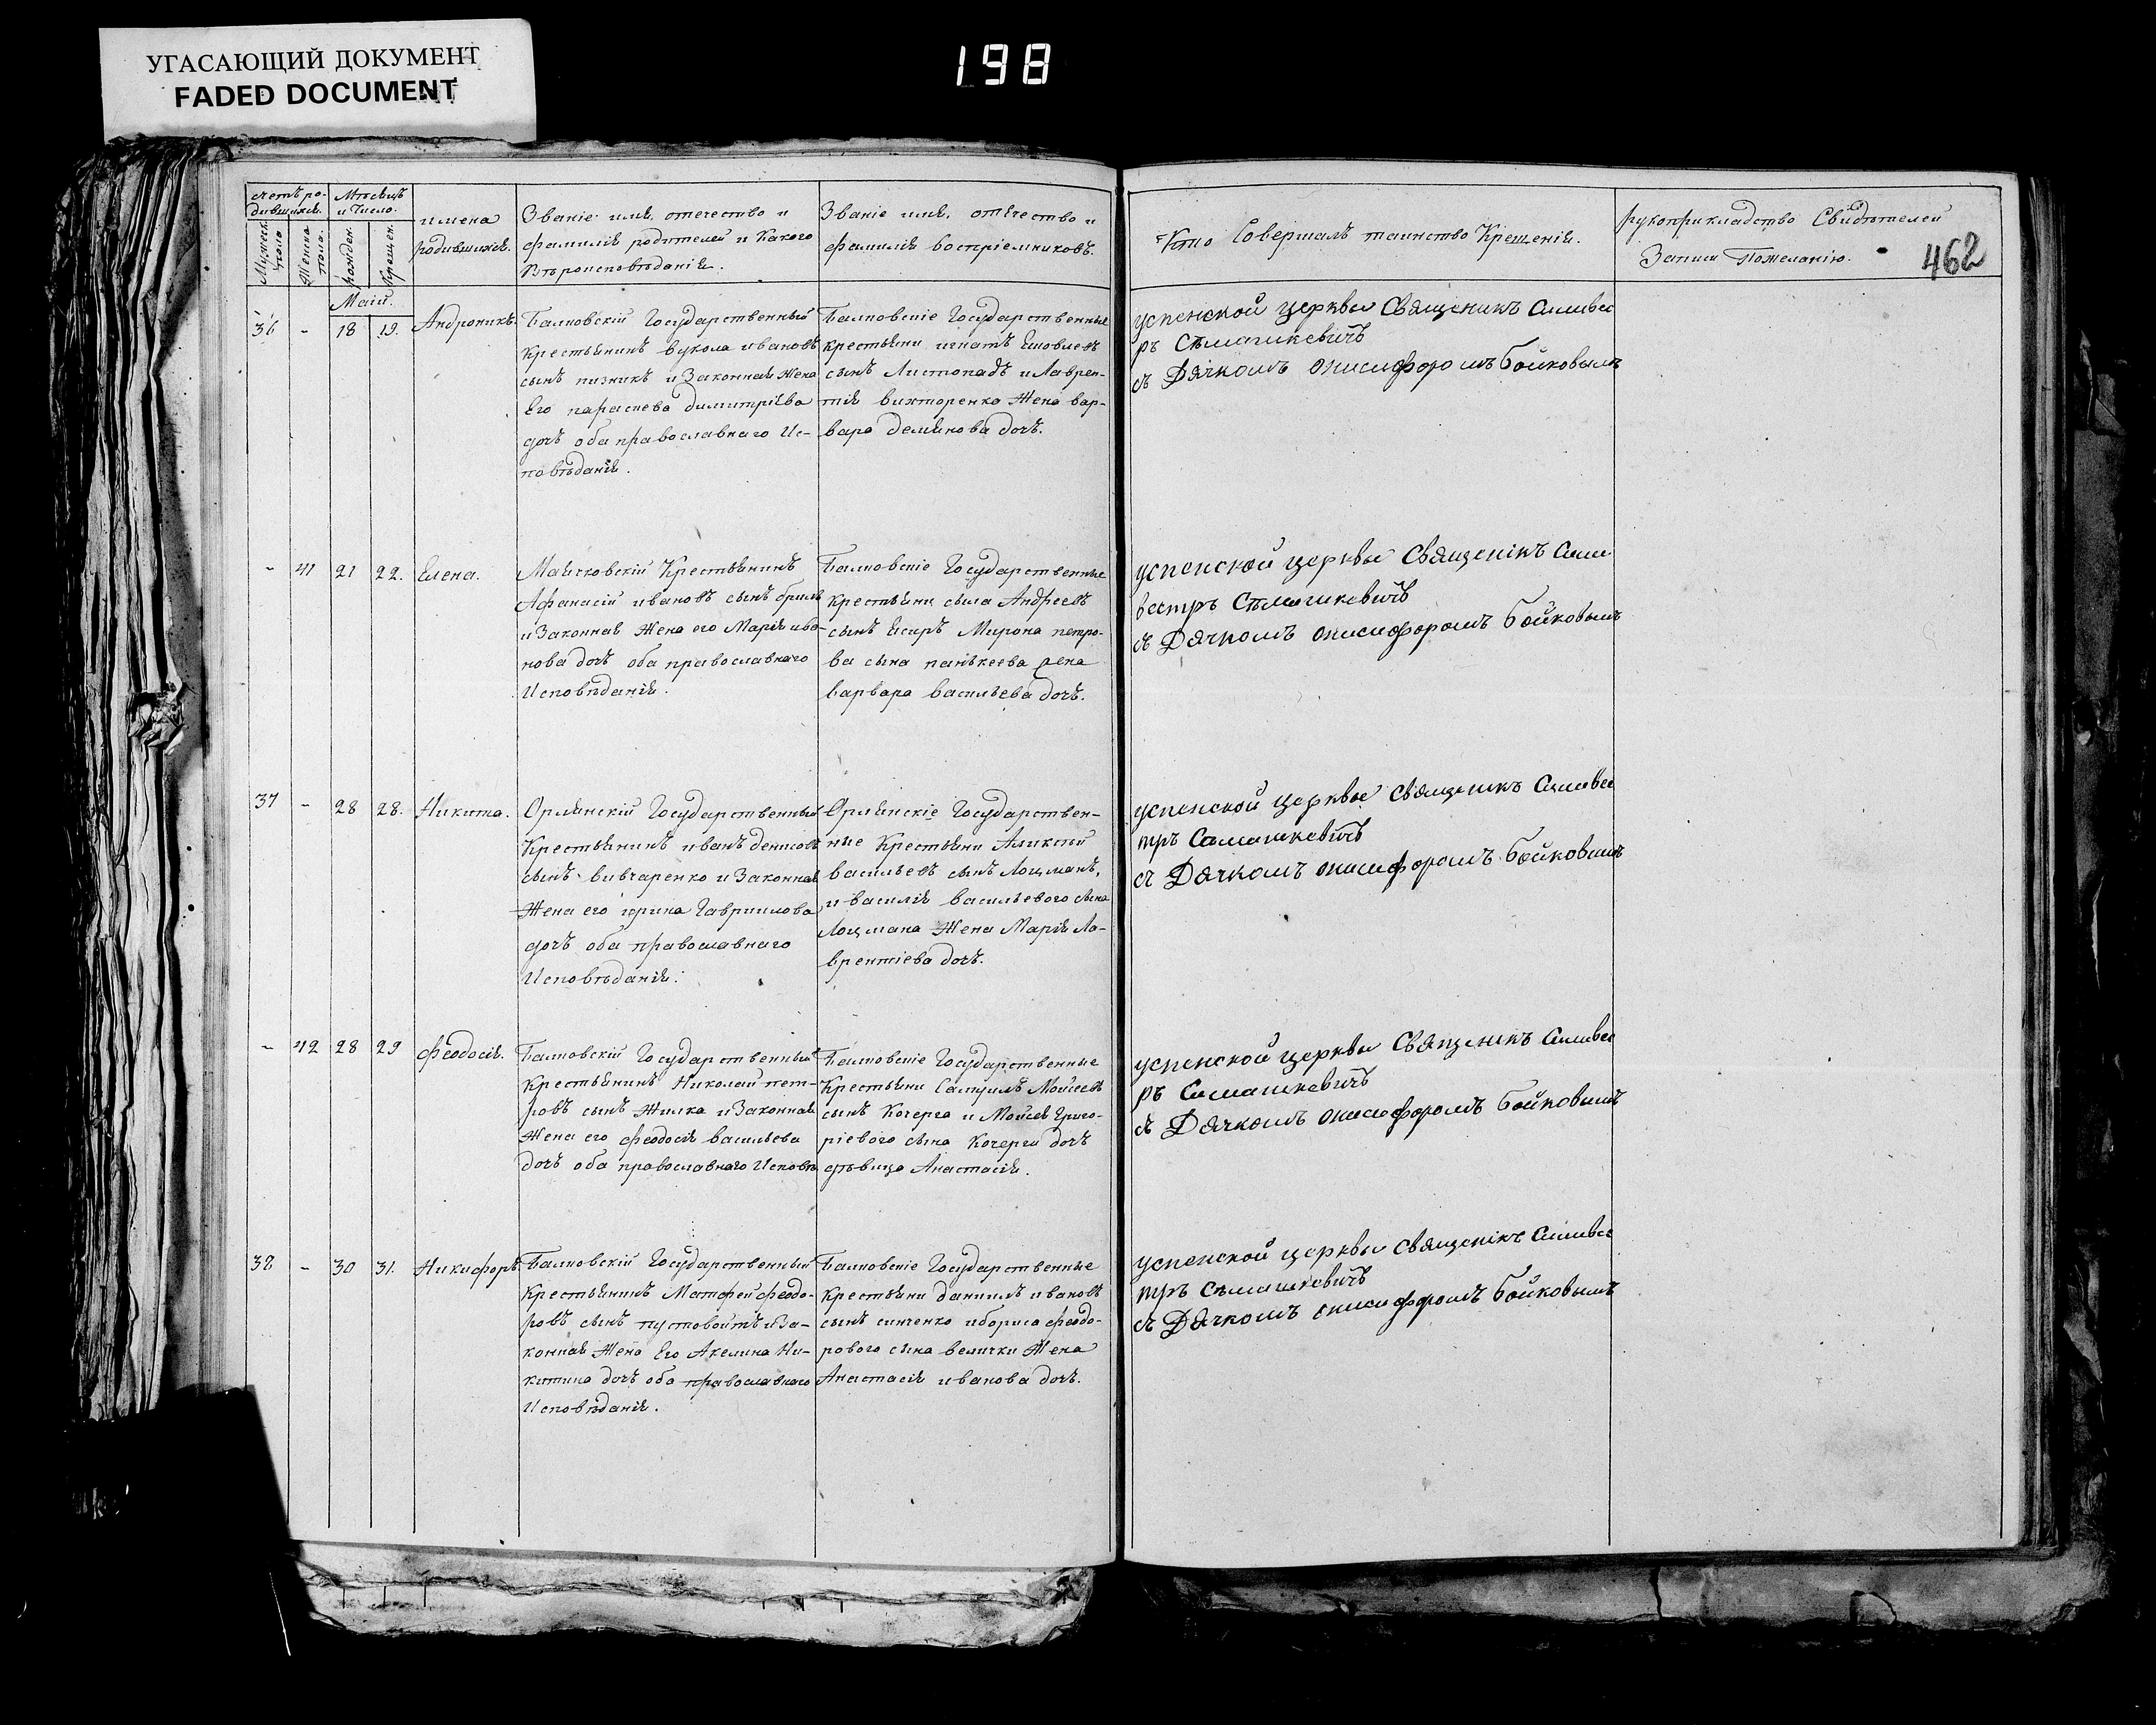 УГАСАЮЩИЙ ДОКУМЕНТ
FADED DOCUMENT
198
462
счетъ ро-
дившихся.
Мужеск. пола
Женска пола.
Мѣсяцъ
и Число.
рожден.
Крещен.
имена
родившихся.
Званіе имя, отечество и
фамилія родителей и Какого
Вѣроисповѣданія.
Званіе имя, отечество и
фамилія воспріемниковъ.
Кто Совершалъ таинство Крещенія.
рукоприкладство Свидѣтелей
Записи Пожеланію.
Маія.
36 - 18 19. Андроникъ.
Государственный
крестьянинъ вукола ивановъ
сынъ пизникъ и Законная Жена
Его параскева димитріева
дочъ оба православнаго Ис-
повѣданія.
Государственные
крестьяни игнатъ
сынъ Листопадъ и Лаврен-
тія вихторенка Жена вар-
вара демянова дочъ.
успенской церквы Священикъ Силвес
ръ Сѣмашкевичъ
съ Дячкомъ онисифоромъ Бойковымъ
- 41 21 22. Елена.
Маячковскій Крестьянинъ
Афанасій ивановъ сынъ бриль
и Законная Жена его Марія ива-
нова дочъ оба православнаго
Исповѣданія.
Государственные
крестьяни сыла Андреевъ
сынъ Мирона петро-
ва сына панькеева Жена
варвара васильева дочъ.
успенской церквы Священікъ Сили
вестръ Сѣмашкевичъ
съ Дячкомъ онисифоромъ Бойковымъ
37 - 28 28. Никита.
Орлянскій Государственный
Крестьянинъ иванъ денисовъ
сынъ вивчаренко и Законная
Жена его ирина Гавриилова
дочъ оба православнаго
Исповѣданія.
Орлянскіе Государствен-
ные Крестьяни Аликсѣй
васильевъ сынъ Лоцманъ,
и василія васильевого сына
Лоцмана Жена Марія Ла-
врентіева дочъ.
успенской церквы священикъ Силвес
тръ Самашкевичъ
съ Дячкомъ онисифоромъ Бойковымъ
- 42 28 29 феодосія.
Государственный
крестьянинъ Николай пет-
ровъ сынъ Жилка и Законная
Жена его феодосія васильева
дочъ оба православнаго Исповѣ
Государственные
Крестьяни Самуилъ Мойсеевъ
сынъ Кочерга и Мойсея Григо-
ріевого сына Кочерги дочъ
дѣвица Анастасія.
успенской церквы Священикъ Силвес
ръ Симашкевичъ
съ Дячкомъ онисифоромъ Бойковымъ
38 - 30 31. Никифоръ
Государственный
Крестьянинъ Матфей феодо-
ровъ сынъ пустовойтъ и За-
конная Жена Его Акелина Ни-
китина дочъ оба православнаго
Исповѣданія.
Государственные
крестьяни даниилъ ивановъ
сынъ синченко и бориса феодо-
рового сына велички Жена
Анастасія иванова дочъ.
успенской церквы священікъ Силвес
тръ Сѣмашкевичъ
съ Дячкомъ онисифоромъ Бойковымъ